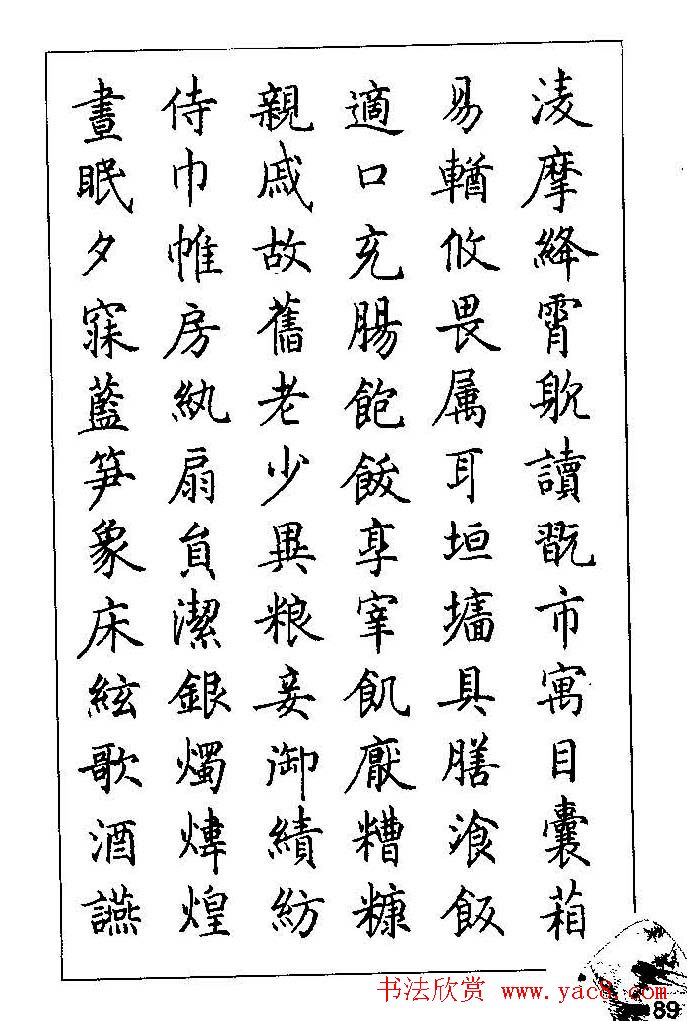 淩摩絳霄躭讀翫市寓目囊箱
易輶攸畏属耳垣墻具膳湌飯
適口充腸飽飫享宰飢厭糟糠
親戚故舊老少異粮妾御績紡
侍巾帷房紈扇員潔銀燭煒煌
晝眠夕寐藍笋象床絃歌酒讌
书法欣赏 www.yac8.com
89